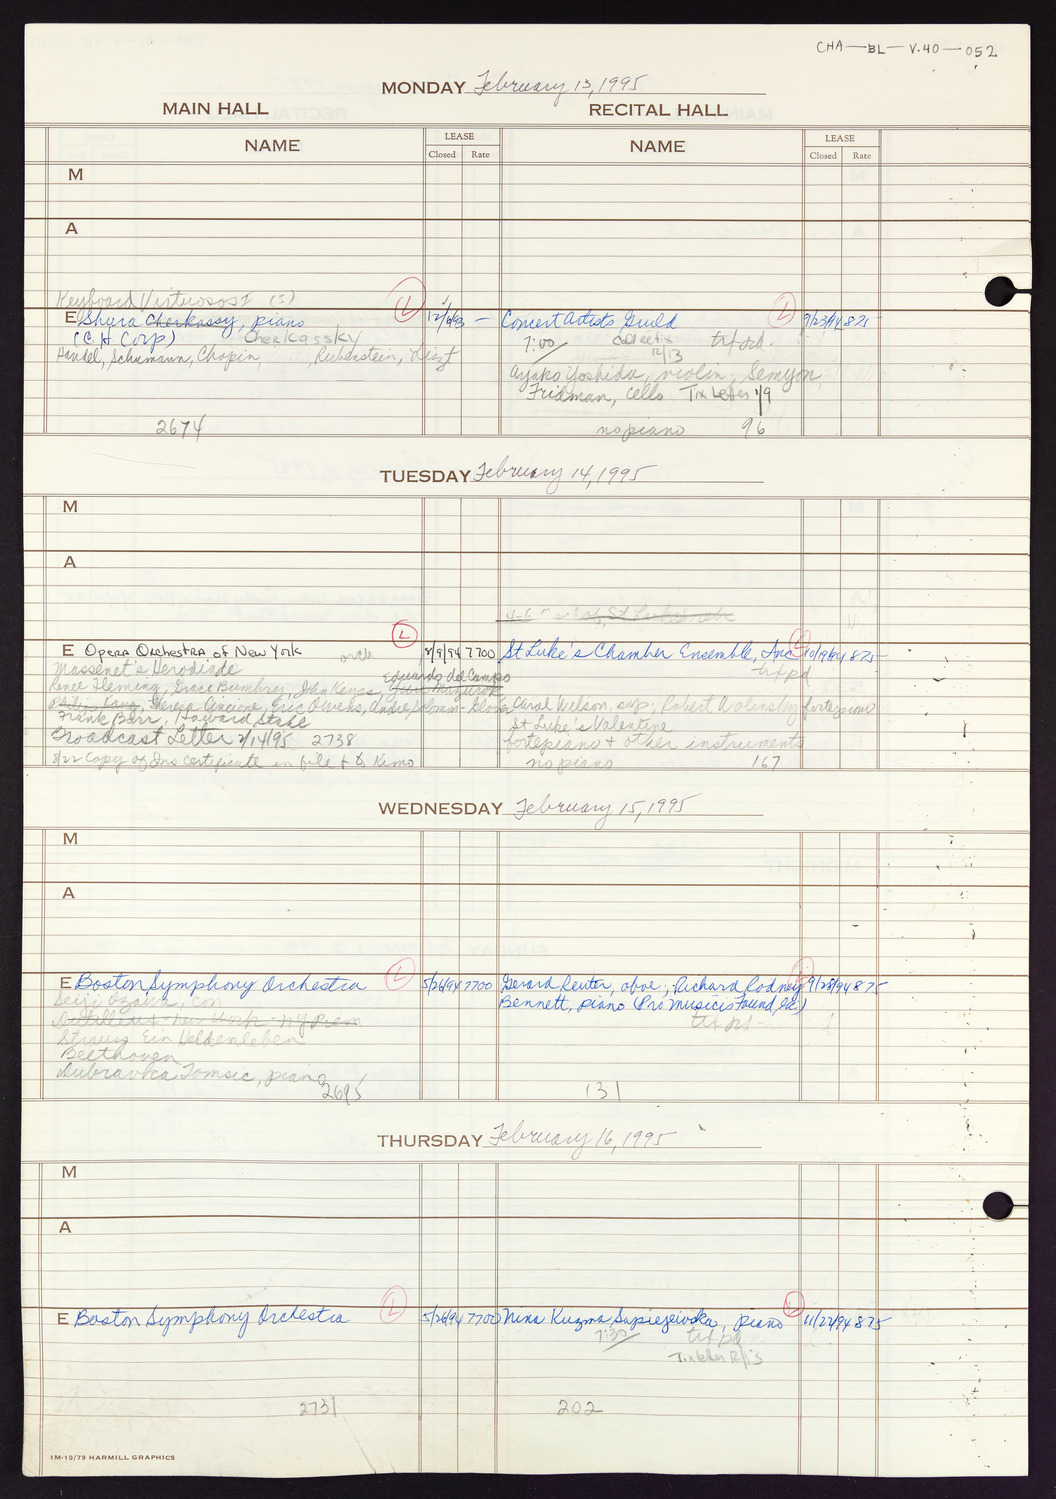 CHA-BL-V.40-052
MONDAY February 13, 1995
MAIN HALL RECITAL HALL
NAME LEASE NAME LEASE
Closed Rate Closed Rate
M
A
Keyboard Virtuosos I (5)
E Shura Cherkassy, piano L 12/6/93 — Concert Artists Guild L 9/23/94 875
(C H Corp) Cherkassky 7:00 Collect tx 12/13 tix pd.
Handel, Schumann, Chopin, Rubenstein, Liszt
Ayako Yoshida, violin; Semyon
Fridman, cello Tix Letter 1/9
2674 no piano 96
TUESDAY February 14, 1995
M
A
E Opera Orchestra of New York L 2/9/94 7700 St Luke's Chamber Ensemble, Inc L 10/19/94 875
orch tix pd
Massenet's Herodiade
Eduardo del Campo
Renee Fleming, Grace Bumbrey, John Keyes, Yuri Mazurok
Philip Kang, Theresa Cincione, Eric Owens, Andre Solomon-Glover Carol Wilson, sop; Robert Wolinsky fortepiano
Frank Barr, Howard Stahl St Luke's Valentine
Broadcast Letter 2/14/95 2738 fortepiano + other instruments
8/22 Copy of Ins certificate in file + to Kimo no piano 167
WEDNESDAY February 15, 1995
M
A
E Boston Symphony Orchestra L 5/26/94 7700 Gerard Reuter, oboe; Richard Rodney 9/28/94 875
Seiji Ozawa, con Bennett, piano (Pro Musicis Found, Inc.)
Dutilleux - New Work - NY Prem tix pd
Strauss Ein Heldenleben
Beethoven
Dubravka Tomsic, piano
2695 131
THURSDAY February 16, 1995
M
A
E Boston Symphony Orchestra L 5/26/94 7700 Nina Kuzma Sapiejewska, piano L 11/22/94 875
7:30 tix pd
Tix letter
2731 202
1M-10/79 HARMILL GRAPHICS